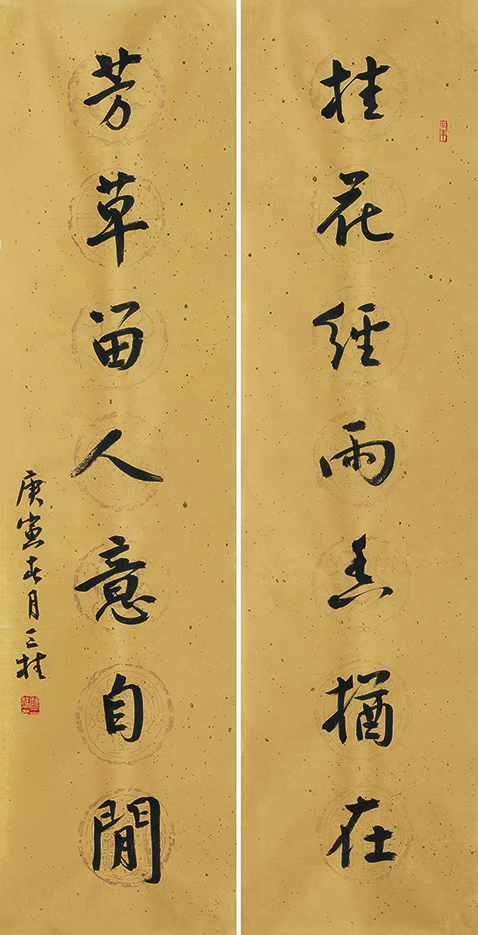 桂花經雨香猶在
芳草留人意自閒
庚寅春月三桂